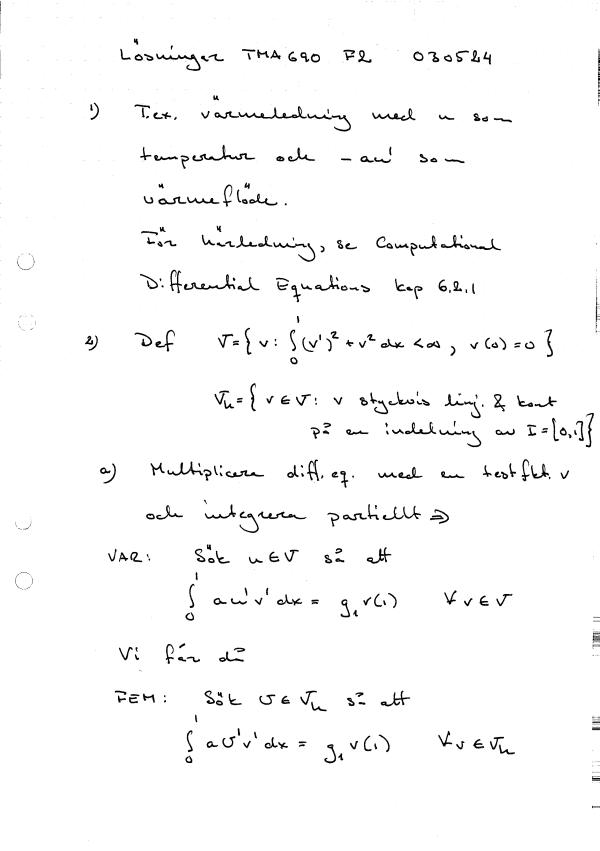 Lösningar TMA690 F2 030524
1) T.ex. värmeledning med u som
temperatur och -au' som
värmeflöde.
För härledning, se Computational
Differential Equations kap 6.2.1
2) Def V={v: ∫₀¹(v')²+v²dx<∞, v(0)=0}
Vₕ={v∈V: v styckvis linj. & kont
på en indelning av I=[0,1]}
a) Multiplicera diff.eq. med en testfkt. v
och integrera partiellt ⇒
VAR: Sök u∈V så att
∫₀¹ au'v'dx = g₁v(1) ∀v∈V
Vi får då
FEM: Sök U∈Vₕ så att
∫₀¹ aU'v'dx = g₁v(1) ∀v∈Vₕ